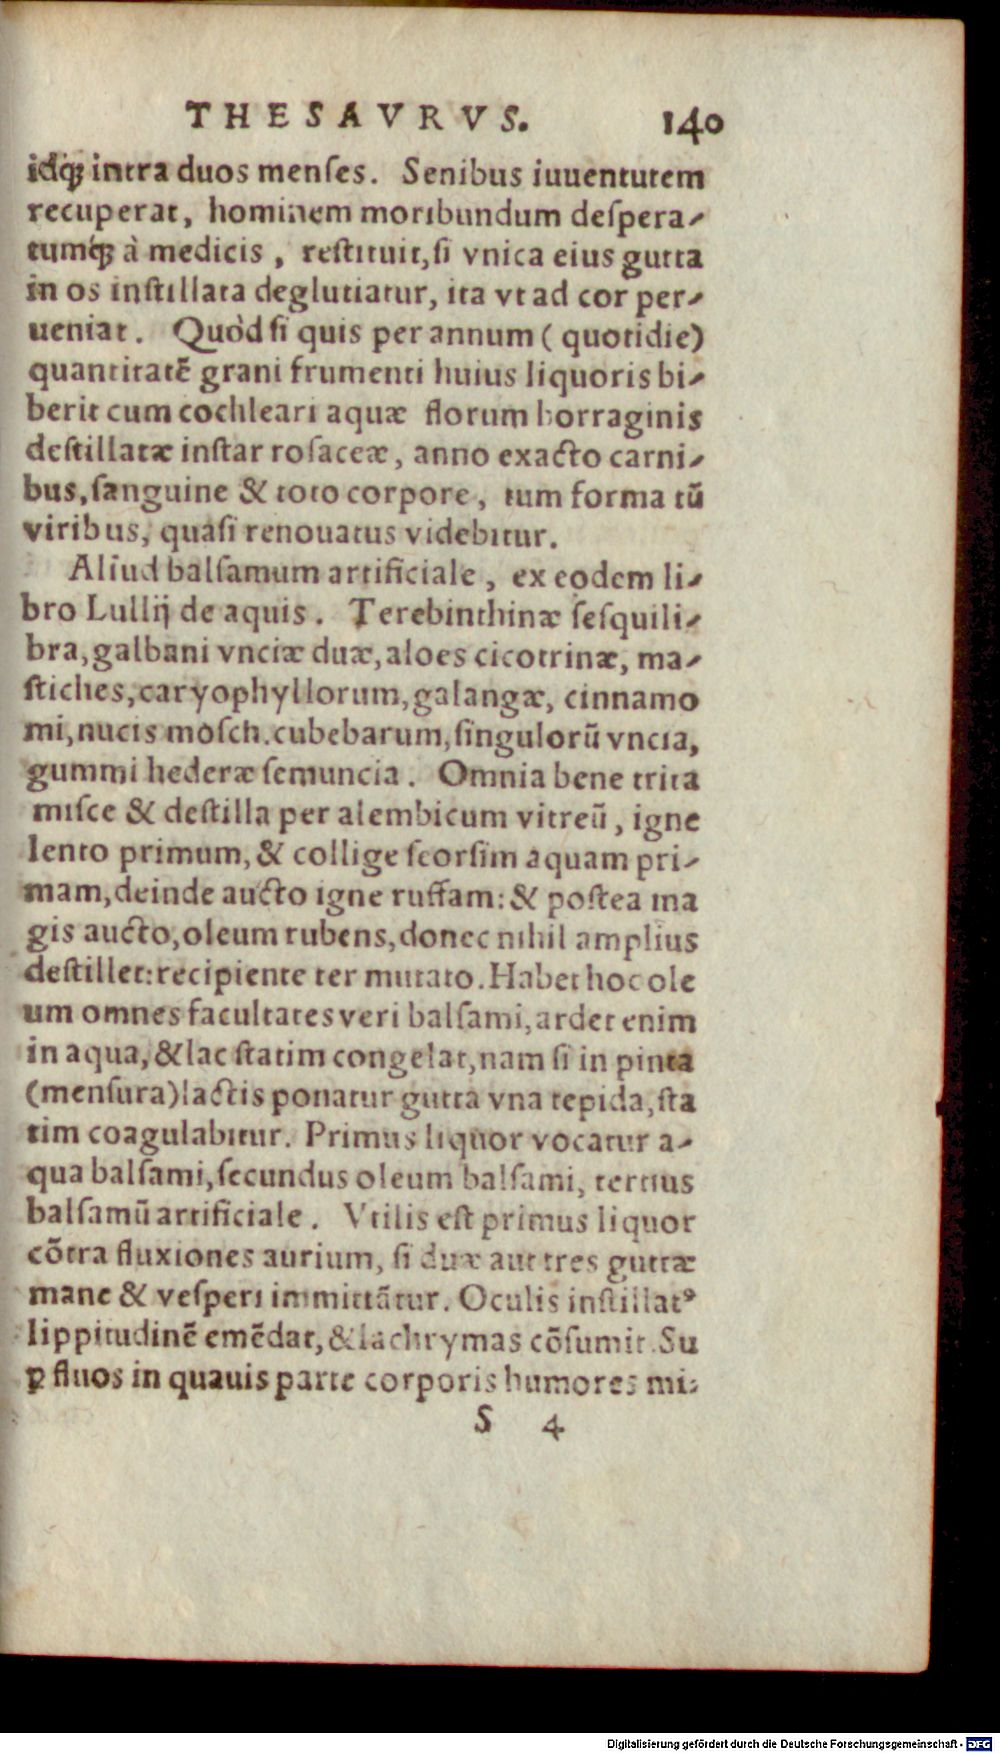 THESAVRVS. 140
idq́; intra duos menſes. Senibus iuuentutem
recuperat, hominem moribundum deſpera-
tumq́; à medicis, reſtituit, ſi vnica eius gutta
in os inſtillata deglutiatur, ita vt ad cor per-
ueniat. Quòd ſi quis per annum (quotidie)
quantitatẽ grani frumenti huius liquoris bi-
berit cum cochleari aquæ florum borraginis
deſtillatæ inſtar roſaceæ, anno exacto carni-
bus, ſanguine & toto corpore, tum forma tũ
viribus, quaſi renouatus videbitur.
Aliud balſamum artificiale, ex eodem li-
bro Lullij de aquis. Terebinthinæ ſeſquili-
bra, galbani vnciæ duæ, aloes cicotrinæ, ma-
ſtiches, caryophyllorum, galangæ, cinnamo
mi, nucis moſch. cubebarum, ſingulorũ vncia,
gummi hederæ ſemuncia. Omnia bene trita
miſce & deſtilla per alembicum vitreũ, igne
lento primum, & collige ſeorſim aquam pri-
mam, deinde aucto igne ruffam: & poſtea ma
gis aucto, oleum rubens, donec nihil amplius
deſtillet: recipiente ter mutato. Habet hoc ole
um omnes facultates veri balſami, ardet enim
in aqua, & lac ſtatim congelat, nam ſi in pinta
(menſura) lactis ponatur gutta vna tepida, ſta
tim coagulabitur. Primus liquor vocatur a-
qua balſami, ſecundus oleum balſami, tertius
balſamũ artificiale. Vtilis eſt primus liquor
cõtra fluxiones aurium, ſi duæ aut tres guttæ
mane & veſperi immittãtur. Oculis inſtillatꝰ
lippitudinẽ emẽdat, & lachrymas cõſumit. Su
ꝑfluos in quauis parte corporis humores mi-
S 4
Digitalisierung gefördert durch die Deutsche Forschungsgemeinschaft - DFG